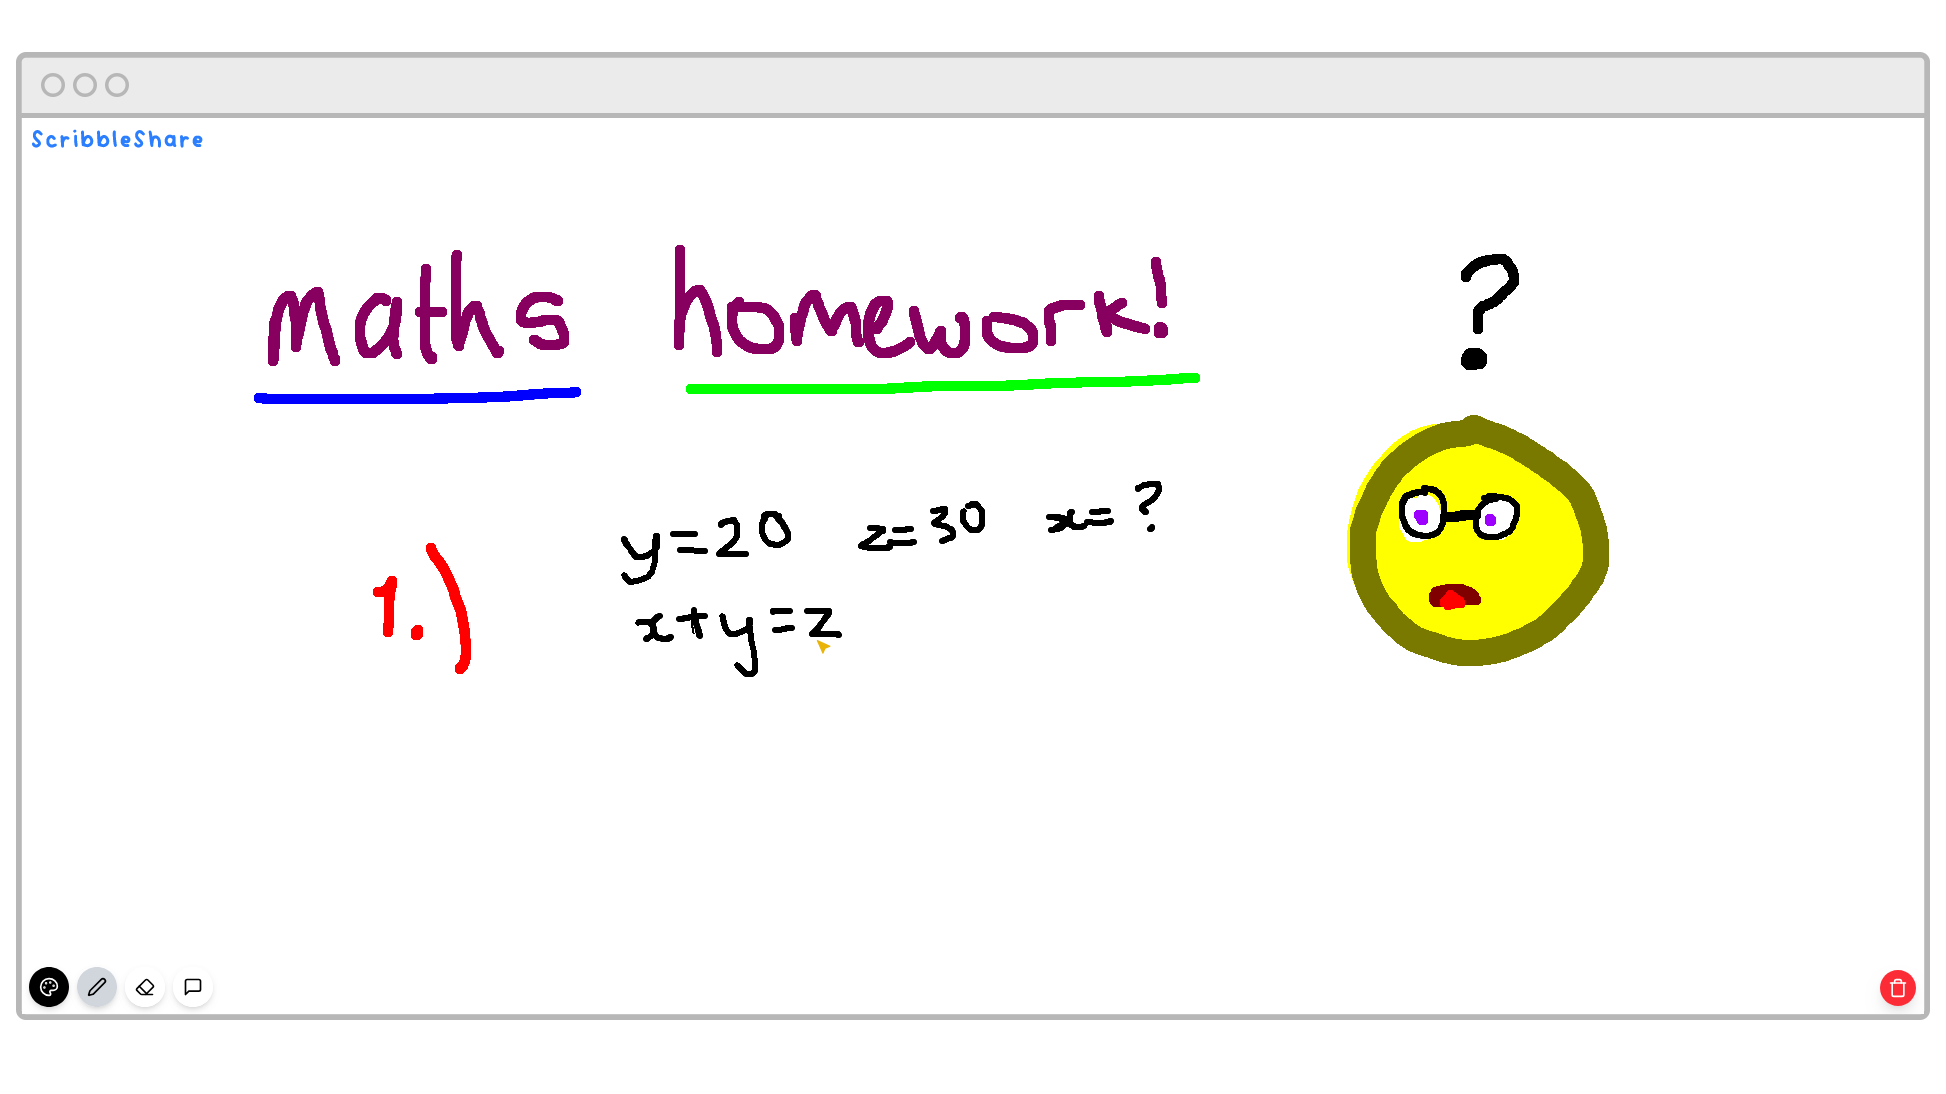 ScribbleShare
maths homework!
?
y=20 z=30 x=?
1.)
x+y=z